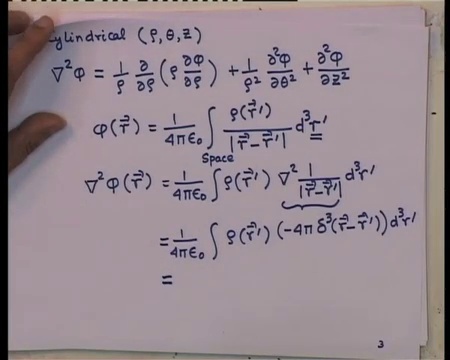 Cylindrical (ρ, θ, z)
∇²φ = 1/ρ ∂/∂ρ (ρ ∂φ/∂ρ) + 1/ρ² ∂²φ/∂θ² + ∂²φ/∂z²
φ(r⃗) = 1/4πε₀ ∫ ρ(r⃗′)/|r⃗-r⃗′| d³r′
Space
∇²φ(r⃗) = 1/4πε₀ ∫ρ(r⃗′) ∇² 1/|r⃗-r⃗′| d³r′
= 1/4πε₀ ∫ ρ(r⃗′) (-4π δ³(r⃗-r⃗′)) d³r′
=
3